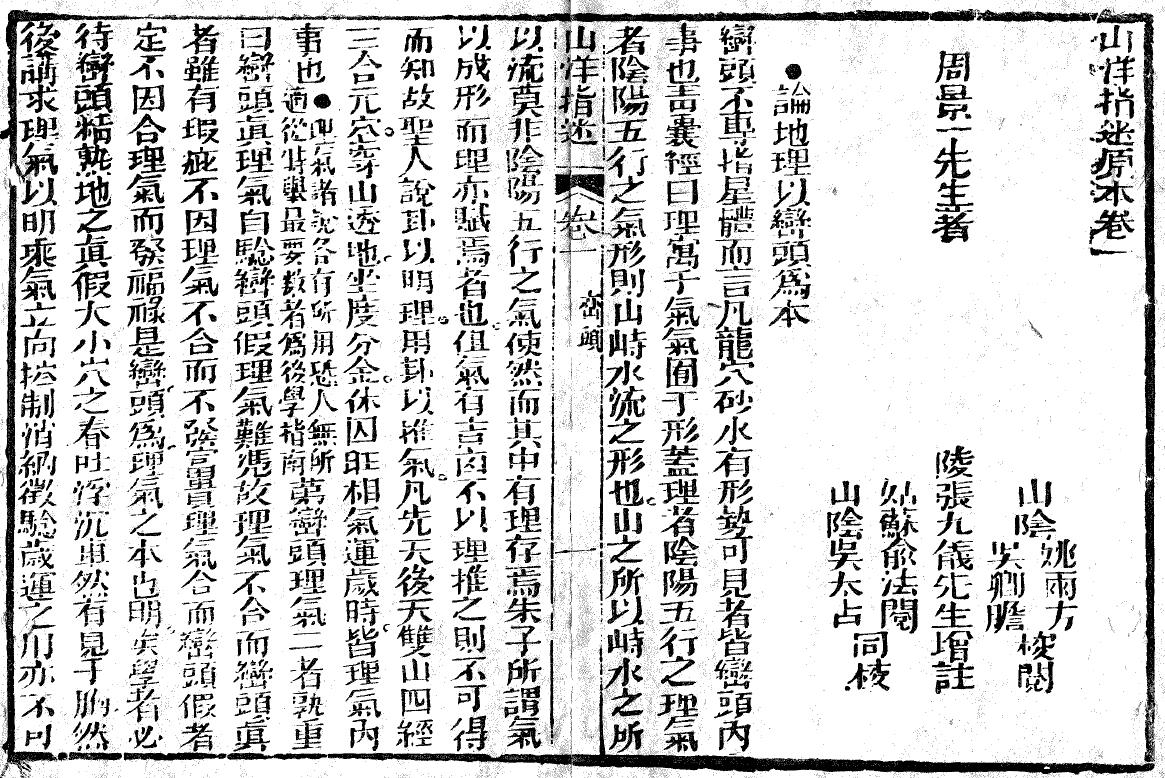 山洋指迷原本卷一
山陰姚雨方
吳卿瞻
校閱
周景一先生著
陵張九儀先生增註
姑蘇俞法閱
山陰吳太占
同校
●論地理以巒頭爲本
巒頭不專指星體而言凡龍穴砂水有形勢可見者皆巒頭內
事也靑囊經曰理寓于氣氣囿于形蓋理者陰陽五行之理氣
者陰陽五行之氣形則山峙水流之形也山之所以峙水之所
山洋指迷 卷一 巒頭 一
以流莫非陰陽五行之氣使然而其中有理存焉朱子所謂氣
以成形而理亦賦焉者也但氣有吉凶不以理推之則不可得
而知故聖人說卦以明理用卦以推氣凡先天後天雙山四經
三合元空穿山透地坐度分金休囚旺相氣運歲時皆理氣內
事也●理氣諸說各有所用恐人無所適從特舉最要數者爲後學指南第巒頭理氣二者孰重
曰巒頭眞理氣自驗巒頭假理氣難憑故理氣不合而巒頭眞
者雖有瑕疵不因理氣不合而不發富貴理氣合而巒頭假者
定不因合理氣而發福祿是巒頭爲理氣之本也明矣學者必
待巒頭精熟地之眞假大小穴之吞吐浮沉車然有見于胸然
後講求理氣以明乘氣立向控制消納徵驗歲運之用亦不可